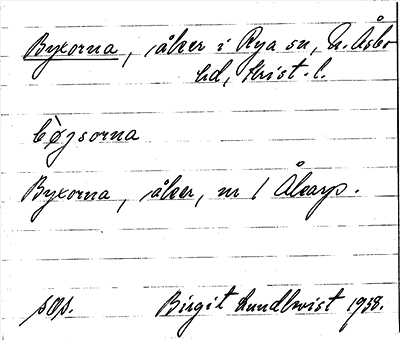 Byxorna, åker i Rya sn, N. Åsbo
hd, Krist. l.
bỳgsorna
Byxorna, åker, nr 1 Åkarp.
sOs. Birgit Lundkvist 1938.